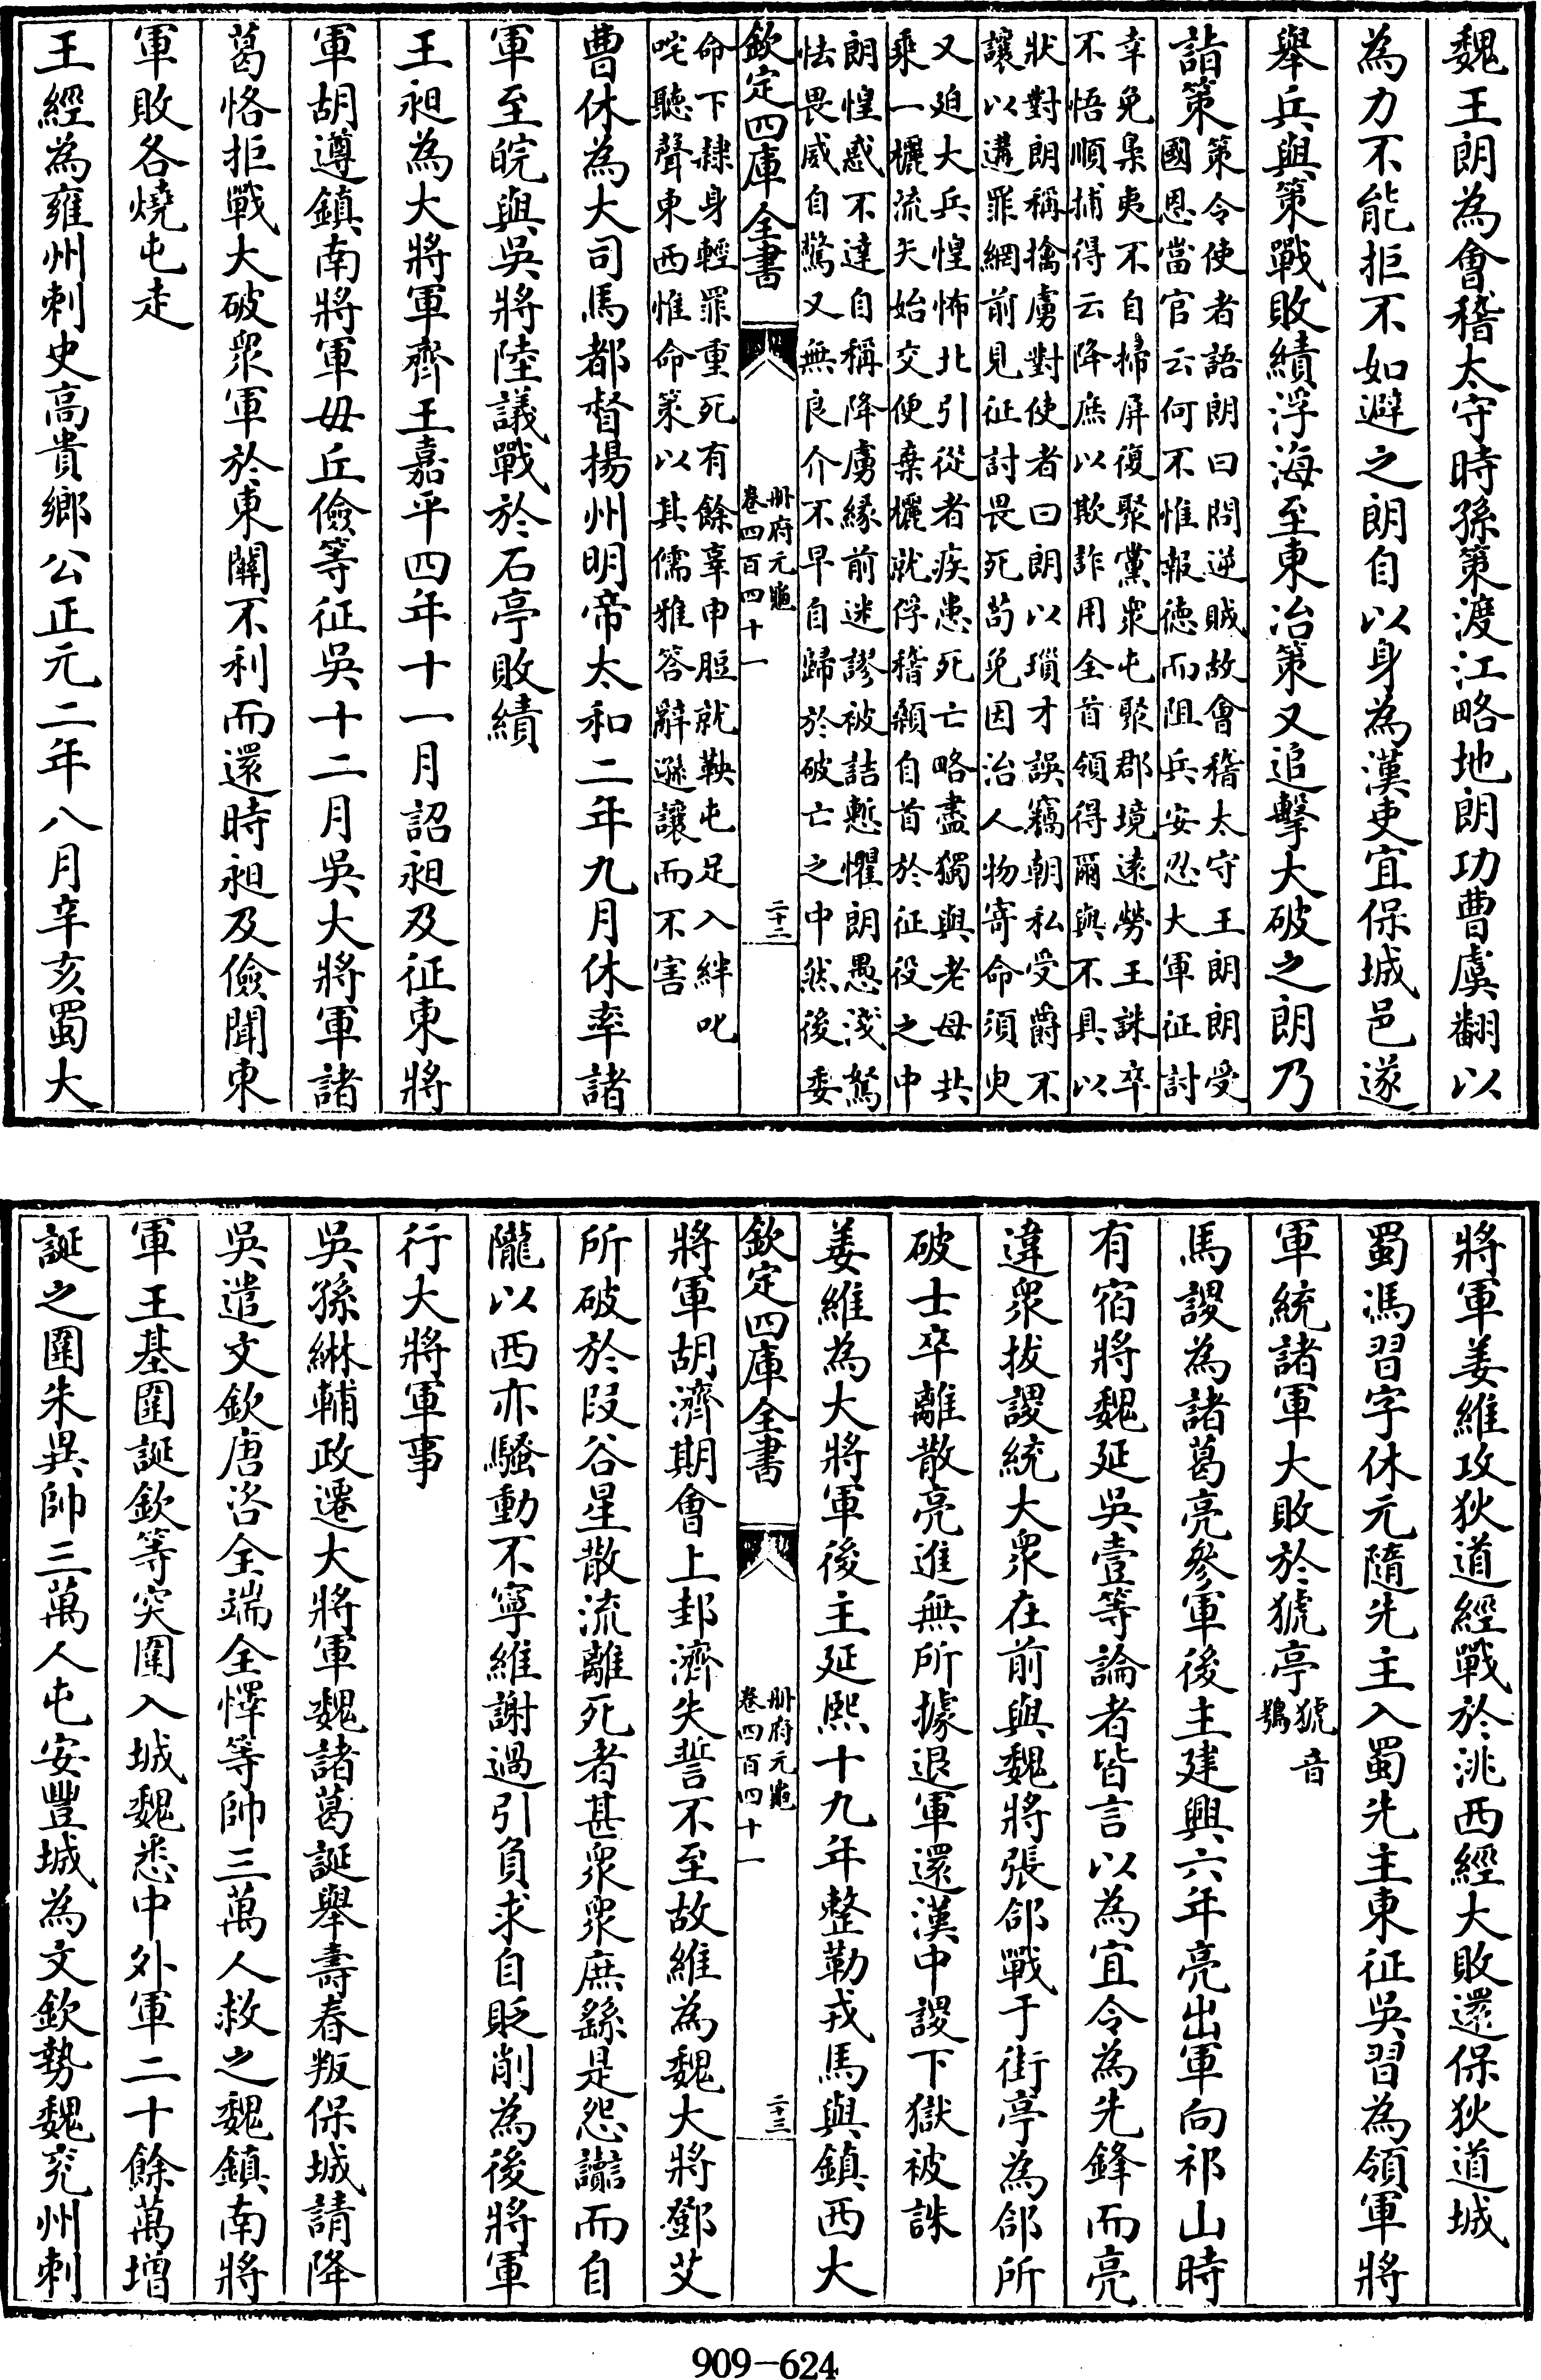 魏王朗為會稽太守時孫策渡江略地朗功曹虞翻以
為力不能拒不如避之朗自以身為漢吏宜保城邑遂
舉兵與策戰敗績浮海至東冶策又追擊大破之朗乃
詣策
策令使者語朗曰問逆賊故會稽太守王朗朗受
國恩當官云何不惟報徳而阻兵安忍大軍征討
幸免梟夷不自掃屏復聚黨衆屯聚郡境逺勞王誅卒
不悟順捕得云降庶以欺詐用全首領得爾與不具以
狀對朗稱擒虜對使者曰朗以瑣才誤竊朝私受爵不
讓以遘罪網前見征討畏死茍免因治人物寄命須臾
又廹大兵惶怖北引從者疾患死亡略盡獨與老母共
乘一欐流矢始交便棄欐就俘稽顙自首於征役之中
朗惶惑不達自稱降虜縁前迷謬被詰慙懼朗愚淺駑
怯畏威自驚又無良介不早自歸於破亡之中然後委
欽定四庫全書
冊府元龜
卷四百四十一
二十二
命下隸身輕罪重死有餘辜申脰就鞅屯足入絆叱
咤聽聲東西惟命策以其儒雅答辭遜讓而不害
曹休為大司馬都督揚州明帝太和二年九月休率諸
軍至皖與吳將陸議戰於石亭敗績
王昶為大將軍齊王嘉平四年十一月詔昶及征東將
軍胡遵鎮南將軍毋丘儉等征吳十二月吳大將軍諸
葛恪拒戰大破衆軍於東關不利而還時昶及儉聞東
軍敗各燒屯走
王經為雍州刺史高貴鄉公正元二年八月辛亥蜀大
將軍姜維攻狄道經戰於洮西經大敗還保狄道城
蜀馮習字休元隨先主入蜀先主東征吳習為領軍將
軍統諸軍大敗於猇亭
猇音
鴞
馬謖為諸葛亮參軍後主建興六年亮出軍向祁山時
有宿將魏延吳壹等論者皆言以為宜令為先鋒而亮
違衆拔謖統大衆在前與魏將張郃戰于街亭為郃所
破士卒離散亮進無所據退軍還漢中謖下獄被誅
姜維為大將軍後主延熙十九年整勒戎馬與鎮西大
欽定四庫全書
冊府元龜
卷四百四十一
二十三
將軍胡濟期會上邽濟失誓不至故維為魏大將鄧艾
所破於段谷星散流離死者甚衆衆庶繇是怨讟而自
隴以西亦騷動不寧維謝過引負求自貶削為後將軍
行大將軍事
吳孫綝輔政遷大將軍魏諸葛誕舉壽春叛保城請降
吳遣文欽唐咨全端全懌等帥三萬人救之魏鎮南將
軍王基圍誕欽等突圍入城魏悉中外軍二十餘萬増
誕之圍朱異帥三萬人屯安豐城為文欽勢魏兖州刺
909-624